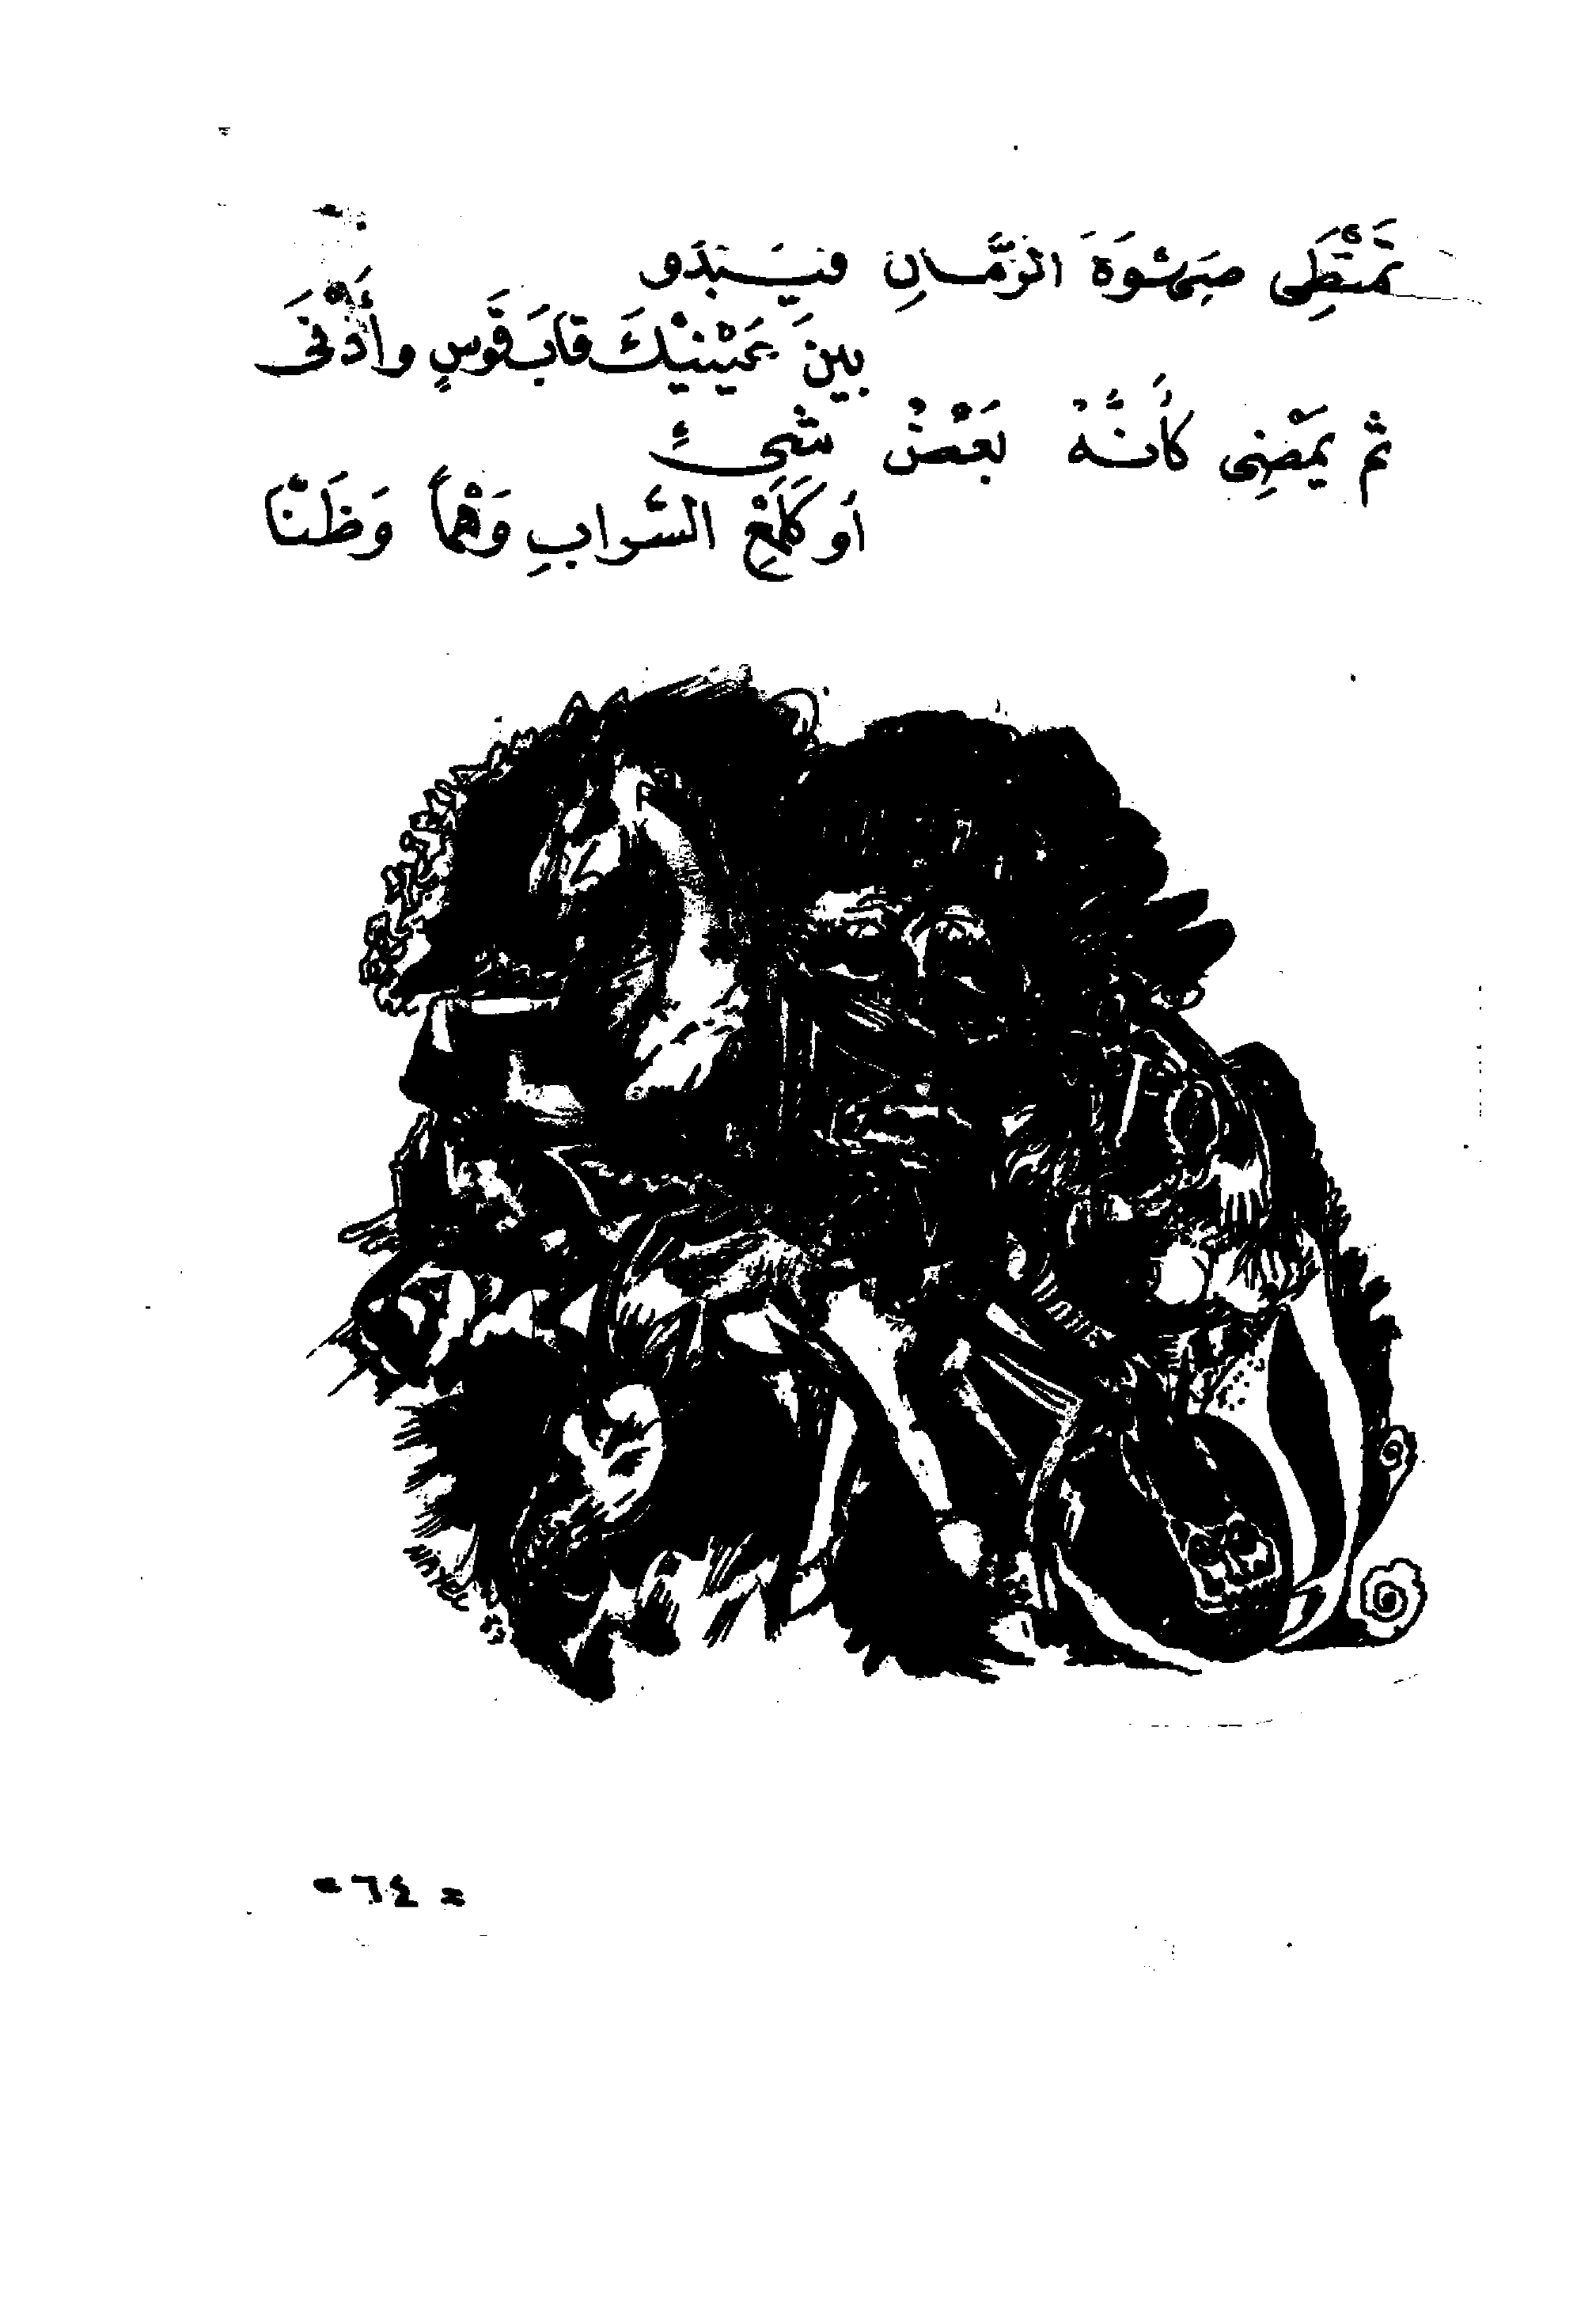 تَمْتَطِى صَهْوَةَ الزَّمَانِ فَيَبْدُو
بينَ عَيْنَيْكَ قابَ قَوْسٍ وأَدْنَى
ثم يَمْضِى كَأَنَّهُ بَعْضُ شَىْءٍ
أو كَلَمْعِ السَّرابِ وَهْماً وَظَنّا
= ٦٤ =